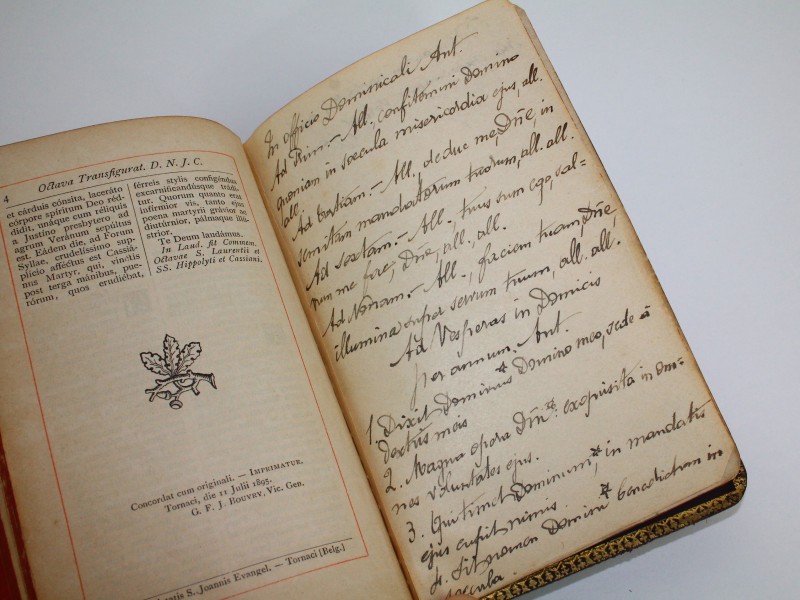 4 Octava Transfigurat. D. N. J. C.
et cárduis cónsita, laceráto
córpore spíritum Deo réd-
didit, unáque cum réliquis
a Justino presbytero ad
agrum Veránum sepúltus
est. Eádem die, ad Forum
Syllae, crudelíssimo sup-
plício afféctus est Cassiá-
nus Martyr, qui, vinctis
post terga mánibus, pue-
rórum, quos erudiébat,
férreis stylis configéndus
excarnificandúsque trádi-
tur. Quorum quanto erat
infírmior vis, tanto ejus
poena martyrii grávior ac
diutúrnior, palmáque illú-
strior.
Te Deum laudámus.
In Laud. fit Commem.
Octavae S. Laurentii et
SS. Hippolyti et Cassiani.
Concordat cum originali. — IMPRIMATUR.
Tornaci, die 11 Julii 1895.
G. F. J. BOUVRY, Vic. Gen.
S. Joannis Evangel. — Tornaci [Belg.]
In officio Dominicali Ant.
Ad Prim. - All., confitemini Domino
quoniam in saecula misericordia ejus, all.
all.
Ad tertiam. - All., deduc me, Dñe, in
semitam mandatorum tuorum, all. all.
Ad sextam. - All., tuus sum ego, sal-
vum me fac, Dñe, all., all.
Ad Nonam. - All., faciem tuam, Dñe,
illumina super servum tuum, all. all.
Ad Vesperas in Domicis
per annum. Ant.
1. Dixit Dominus * Domino meo, sede a
dextris meis
2. Magna opera Dñi * exquisita in om-
nes voluntates ejus.
3. Qui timet Dominum, * in mandatis
ejus cupit nimis.
4. Sit nomen Domini * benedictum in
saecula.